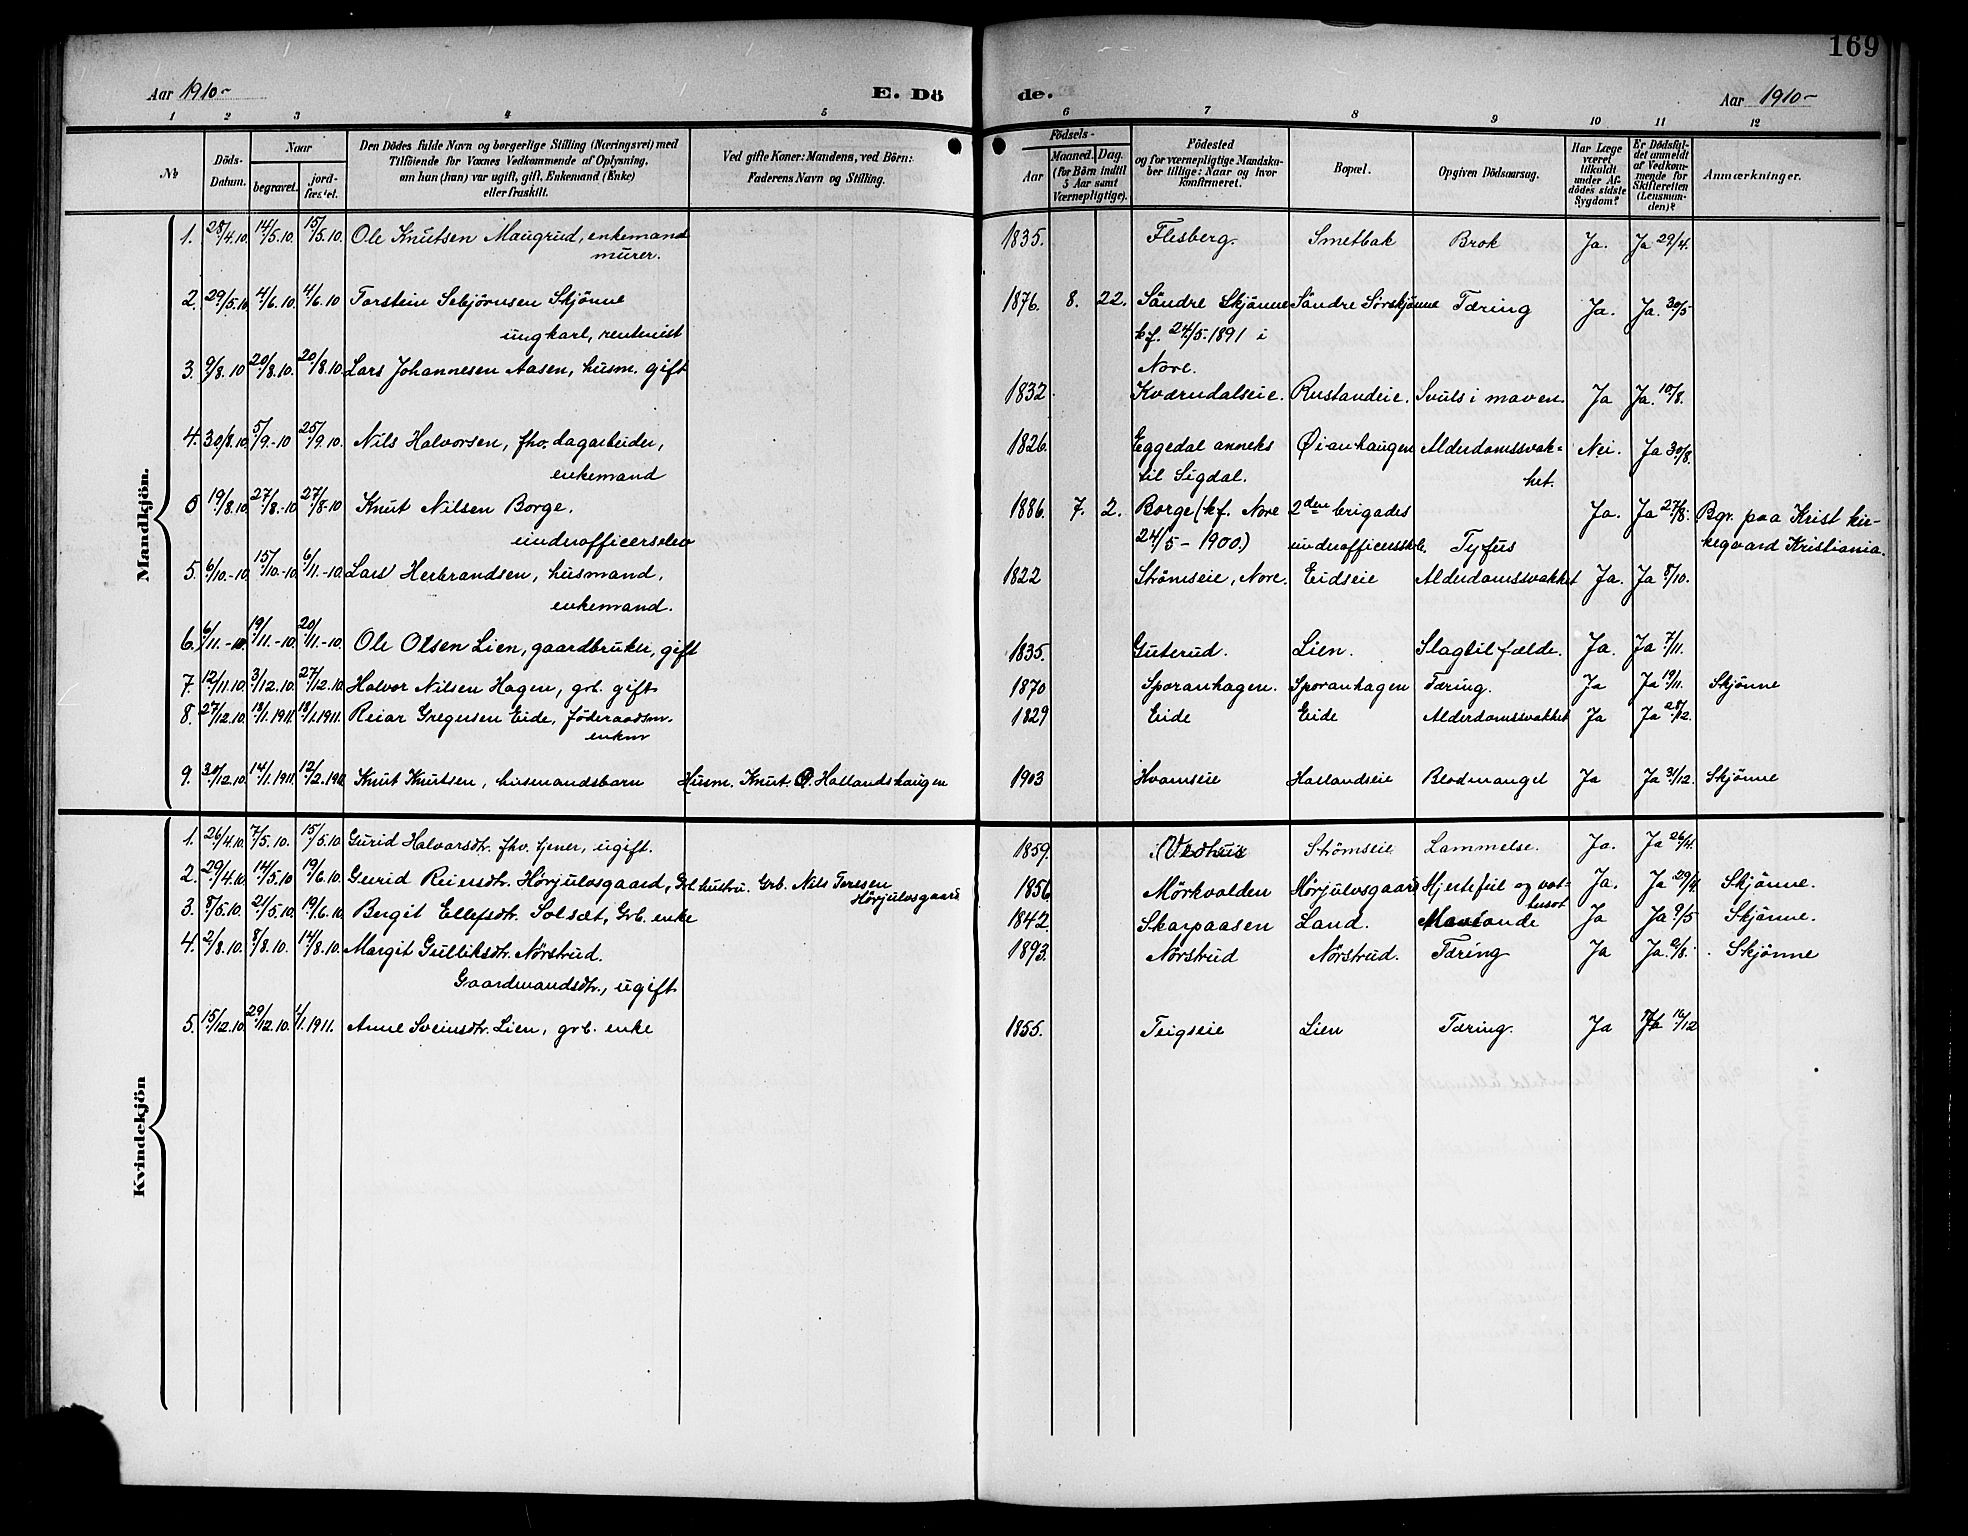 169
Aar 1910- E. Dö de. Aar 1910-
1 2 3 4 5 6 7 8 9 10 11 12
№
Döds-Datum.
Naar
begravet.
jord-fæstet.
Den Dödes fulde Navn og borgerlige Stilling (Næringsvei) med
Tilföiende for Voxnes Vedkommende af Oplysning,
om hun (han) var ugift, gift, Enkemand (Enke)
eller fraskilt.
Ved gifte Koner: Mandens, ved Börn:
Faderens Navn og Stilling.
Födsels-
Aar
Maaned. Dag.
(for Börn indtil
5 Aar samt
Værnepligtige).
Födested
og for værnepligtige Mandska-
ber tillige: Naar og hvor
konfirmeret.
Bopæl.
Opgiven Dödsaarsag.
Har Læge
været
tilkaldt
under Af-
dödes sidste
Sygdom?
Er Dödsfal-
det anmeldt
af Vedkom-
mende for
Skifteretten
(Lensman-
den)?
Anmærkninger.
Mandkjön.
1. 28/4.10. 14/5.10. 15/5.10. Ole Knutsen Maugrud, enkemand 1835. Flesberg. Smetbak Brok Ja. Ja 29/4.
murer.
2. 29/5.10 4/6.10. 4/6.10 Torstein Sebjörnsen Skjönne 1876. 8. 22. Söndre Skjönne Söndre Sørskjönne Tæring Ja. Ja. 30/5
ungkarl, rentenist kf. 24/5.1891 i
Nore.
3. 9/8.10 20/8.10. 20/8.10. Lars Johannesen Aasen, husm. gift 1832 Kværndalseie. Rustandeie. Svuls i maven. Ja Ja. 10/8.
4. 30/8.10. 5/9.-10 25/9.10. Nils Halvorsen, fhv. dagarbeider, 1826. Eggedal anneks Øianhaugen Alderdomssvak- Nei. Ja 30/8.
enkemand til Sigdal. het.
5 19/8.10. 27/8.-10 27/8-10 Knut Nilsen Borge, 1886. 7. 2. Borge (kf. Nore 2den brigades Ja. Ja 27/8. Bgr. paa Krist kir-
underofficerselev 24/5-1900.) underofficersskle. Tyfus kegaard Kristiania.
5. 6/10.-10. 15/10.-10. 6/11.-10. Lars Herbrandsen, husmand, 1822 Strömseie, Nore. Eidseie Alderdomssvakhet Ja. Ja 8/10.
enkemand.
6. 6/11.-10. 19/11.-10. 20/11.-10. Ole Olsen Lien, gaardbruker, gift 1835. Guterud. Lien. Slagtilfælde. Ja. Ja 7/11.
7. 12/11.10. 3/12.10. 27/12.10. Halvor Nilsen Hagen, grb. gift 1870 Sporanhagen. Sporanhagen Tæring. Ja Ja 19/11. Skjönne
8. 27/12.10. 18/1.1911. 18/1.1911. Reiar Gregusen Eide, föderaadsm. 1829 Eide Eide Alderdomssvakhet Ja Ja 28/12.
enkm
9. 30/12.10. 14/1.1911. 12/2.1911 Knut Knutsen, husmandsbarn Husm. Knut O. Hallandshaugen 1903 Hvamseie Hallandseie Blodmangel Ja Ja 31/12. Skjönne
Kvindekjön
1. 26/4.10. 7/5.10. 15/5.10 Gurid Halvorsdtr. fhv. tjener, ugift. 1859. Strömseie Lammelse. Ja. Ja 26/4.
2. 29/4.10. 14/5.10 19/6.10. Gurid Reiersdtr. Hörjulvsgaard, Grb hustru. Grb. Nils Toresen 1856 Mörkvolden Hörjulvsgaard Hjertefeil og vat- Ja. Ja 29/4. Skjönne.
Hörjulvsgaard tersot
3. 8/5.10. 21/5.10. 19/6.10. Birgit Ellefsdtr. Solsæt, Grb. enke 1842. Skarpaasen Land. Ja Ja 9/5 Skjönne.
4. 2/8.10. 8/8.10. 14/8.10. Margit Gulliksdtr. Nörstrud. 1893. Nörstrud Nörstrud. Tæring Ja Ja. 2/8. Skjönne
Gaardmandsdtr., ugift
5. 15/12.10. 29/12.10. 1/1.1911. Anne Sveinsdtr. Lien, grb. enke 1855. Teigseie Lien Tæring. Ja Ja 16/12